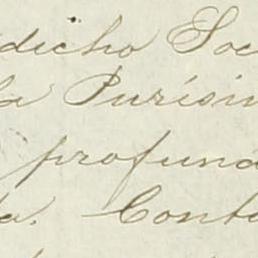 dicho Soc
la Purísim
profund
ta. Conta